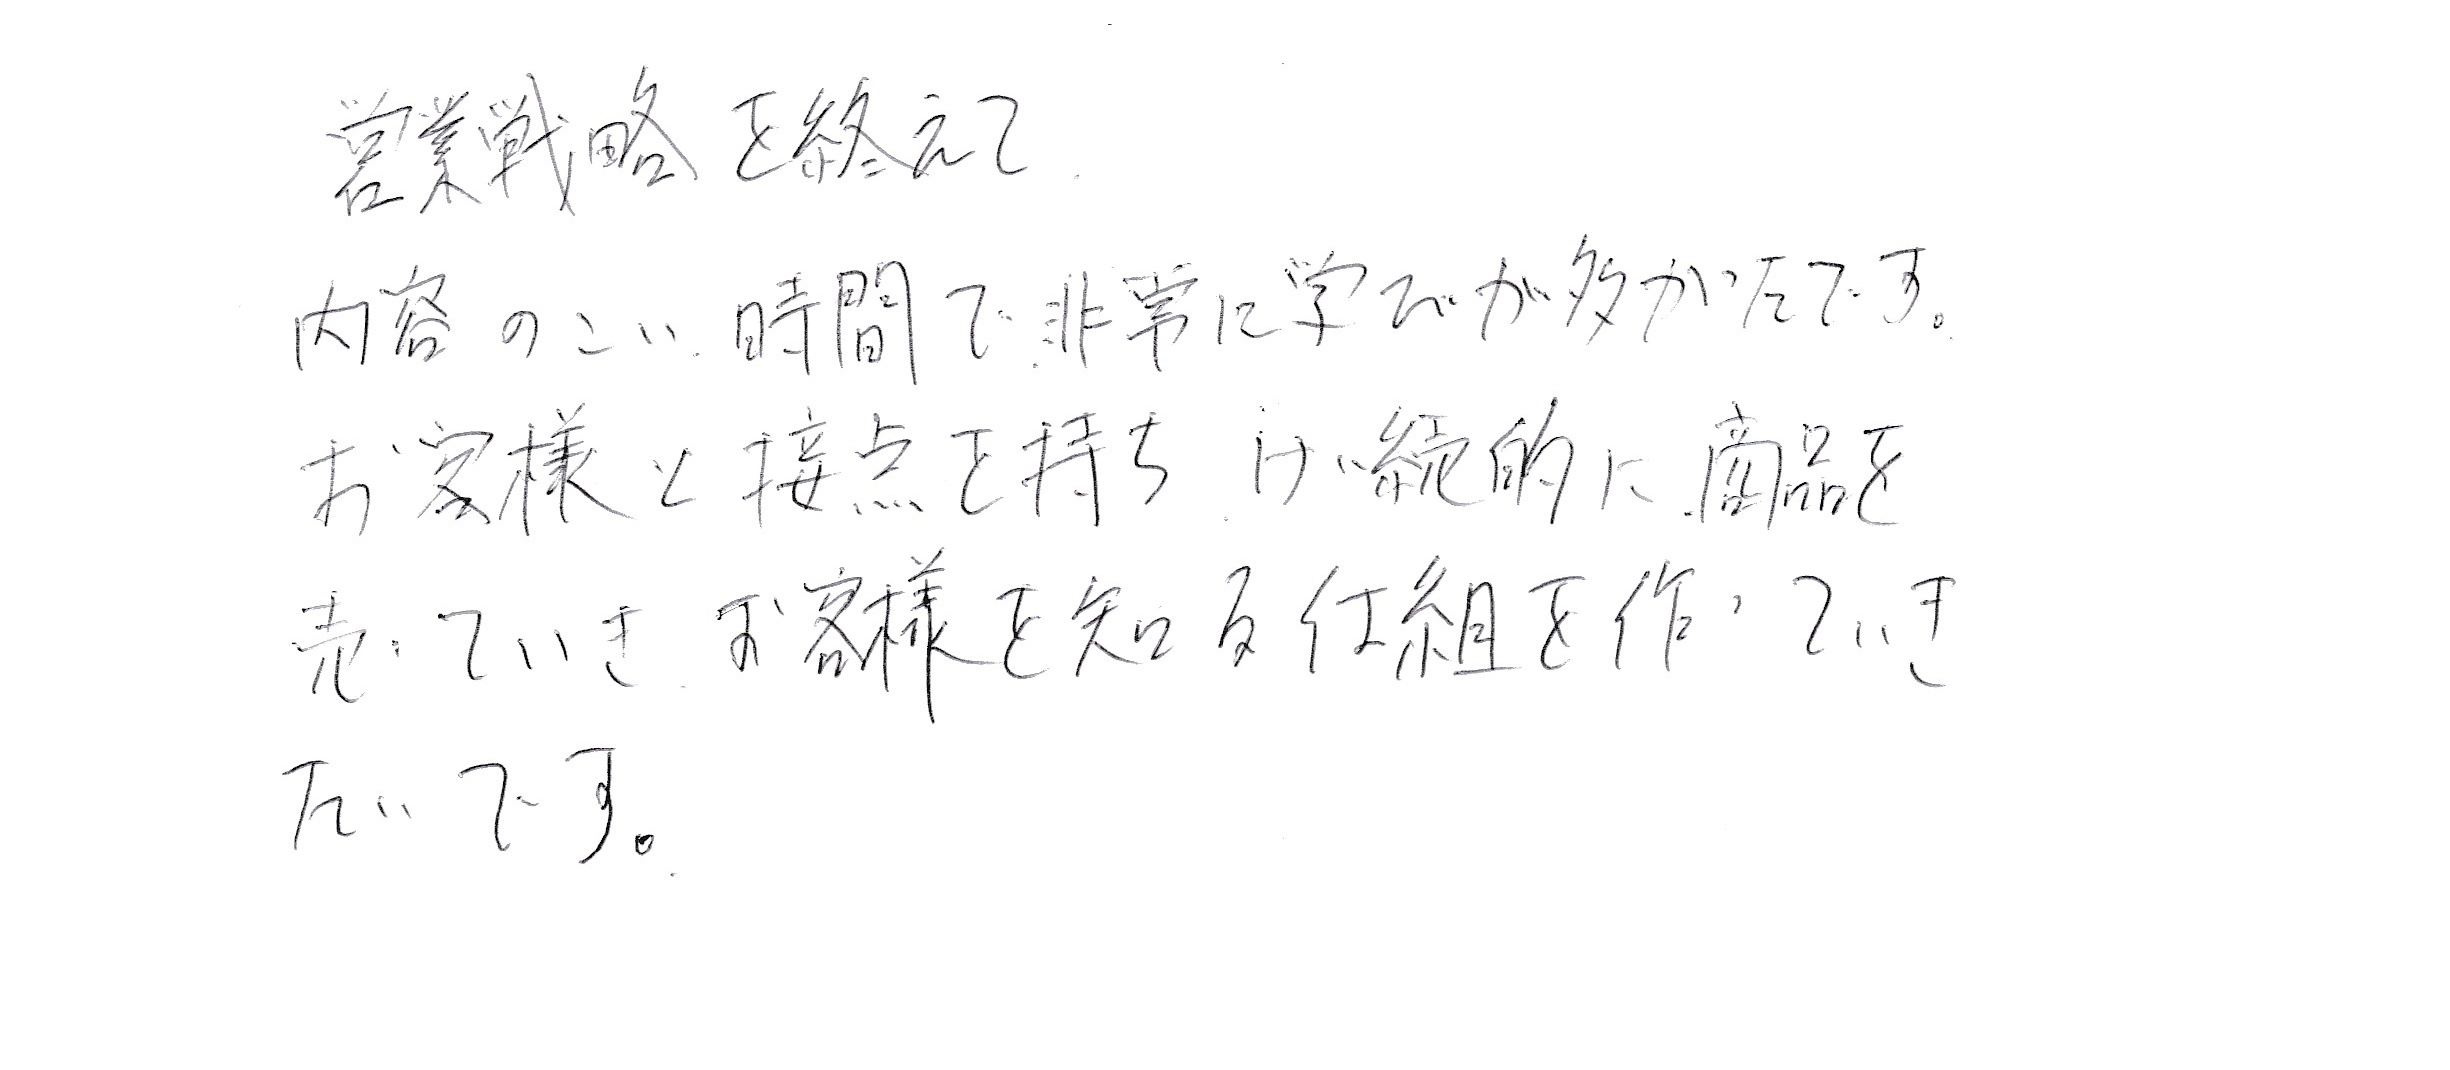 営業戦略を終えて
内容のこい時間で非常に学びが多かったです。
お客様と接点を持ちけい続的に商品を
売っていきお客様を知る仕組を作っていき
たいです。